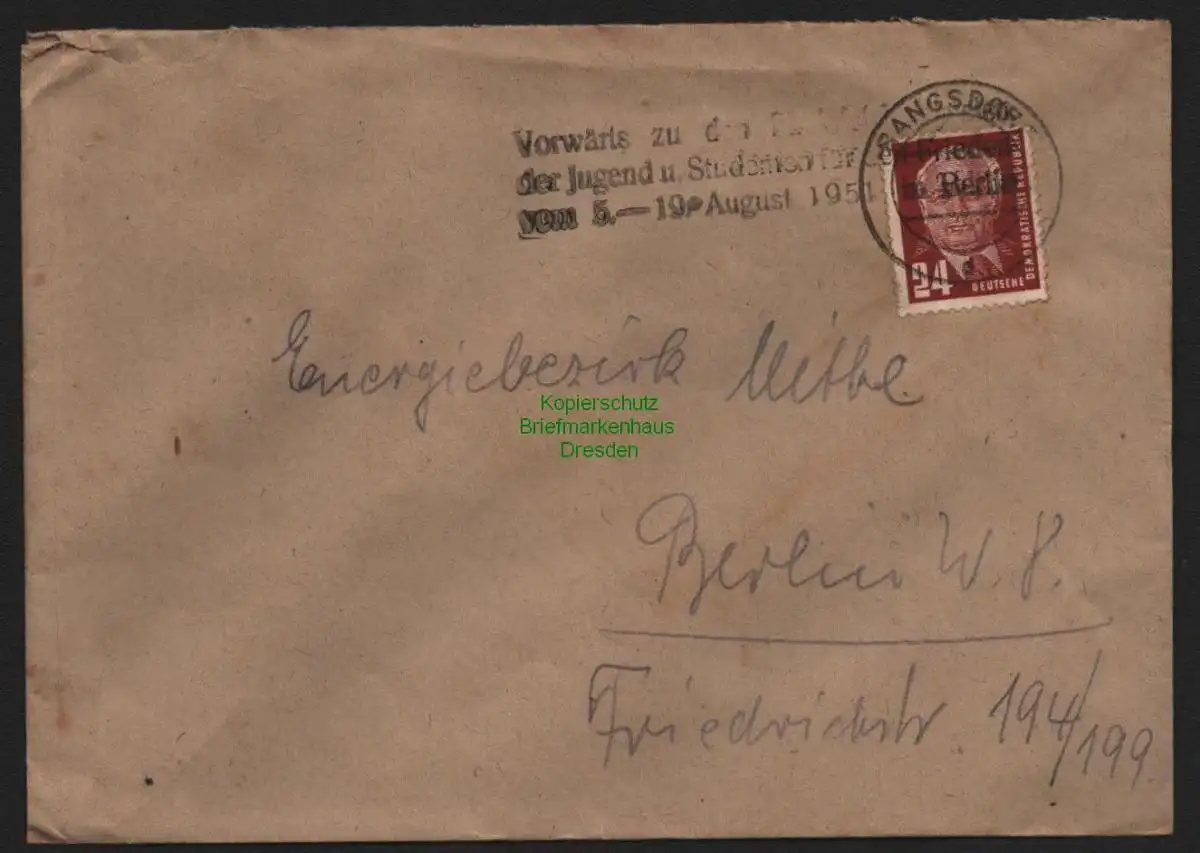 Vorwärts zu den
der Jugend u. Studenten für den Frieden
vom 5.—19. August 1951 in Berlin
RANGSDORF
24
DEUTSCHE
DEMOKRATISCHE REPUBLIK
Energiebezirk Mitte
Kopierschutz
Briefmarkenhaus
Dresden
Berlin W. 8.
Friedrichstr. 194/199